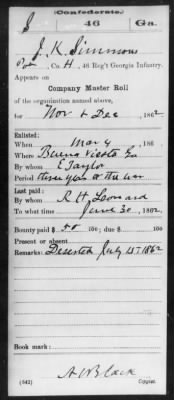 (Confederate.)
S 46 Ga.
J. K. Simmons
Pvt, Co. H, 46 Reg't Georgia Infantry.
Appears on
Company Muster Roll
of the organization named above,
for Nov & Dec, 1862.
Enlisted:
When Mar 4, 186
Where Buena Vista Ga
By whom E Taylor
Period three years or the war
Last paid:
By whom R H Leonard
To what time June 30, 1862.
Bounty paid $ 50 100; due $ 100
Present or absent
Remarks: Deserted July 4th 1862
Book mark:
(642) A W Black
Copyist.